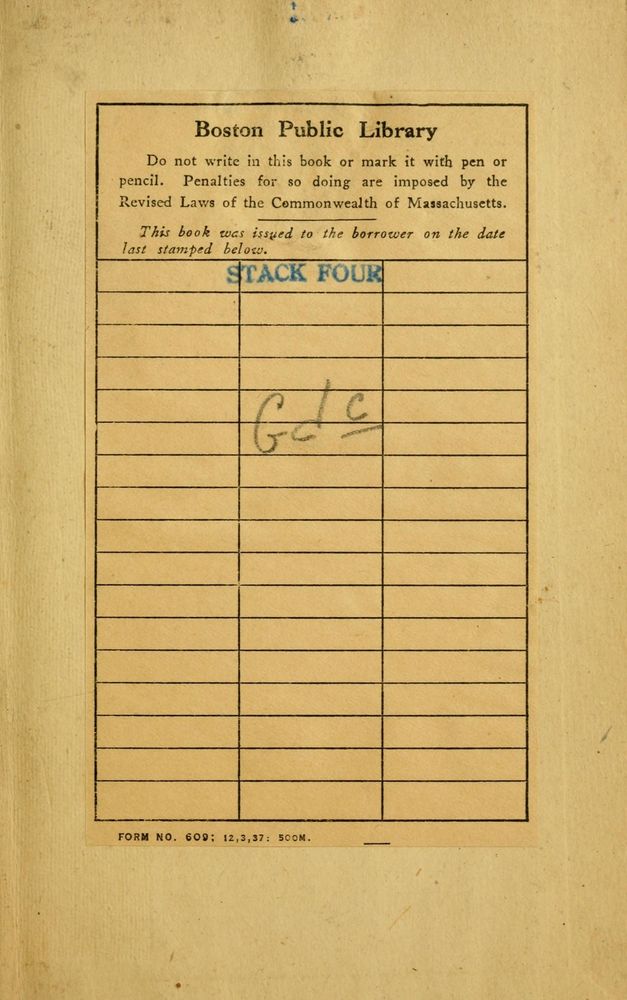 Boston Public Library
Do not write in this book or mark it with pen or
pencil. Penalties for so doing are imposed by the
Revised Laws of the Commonwealth of Massachusetts.
This book was issued to the borrower on the date
last stamped below.
STACK FOUR
Gdc
FORM NO. 609; 12,3,37: 500M.